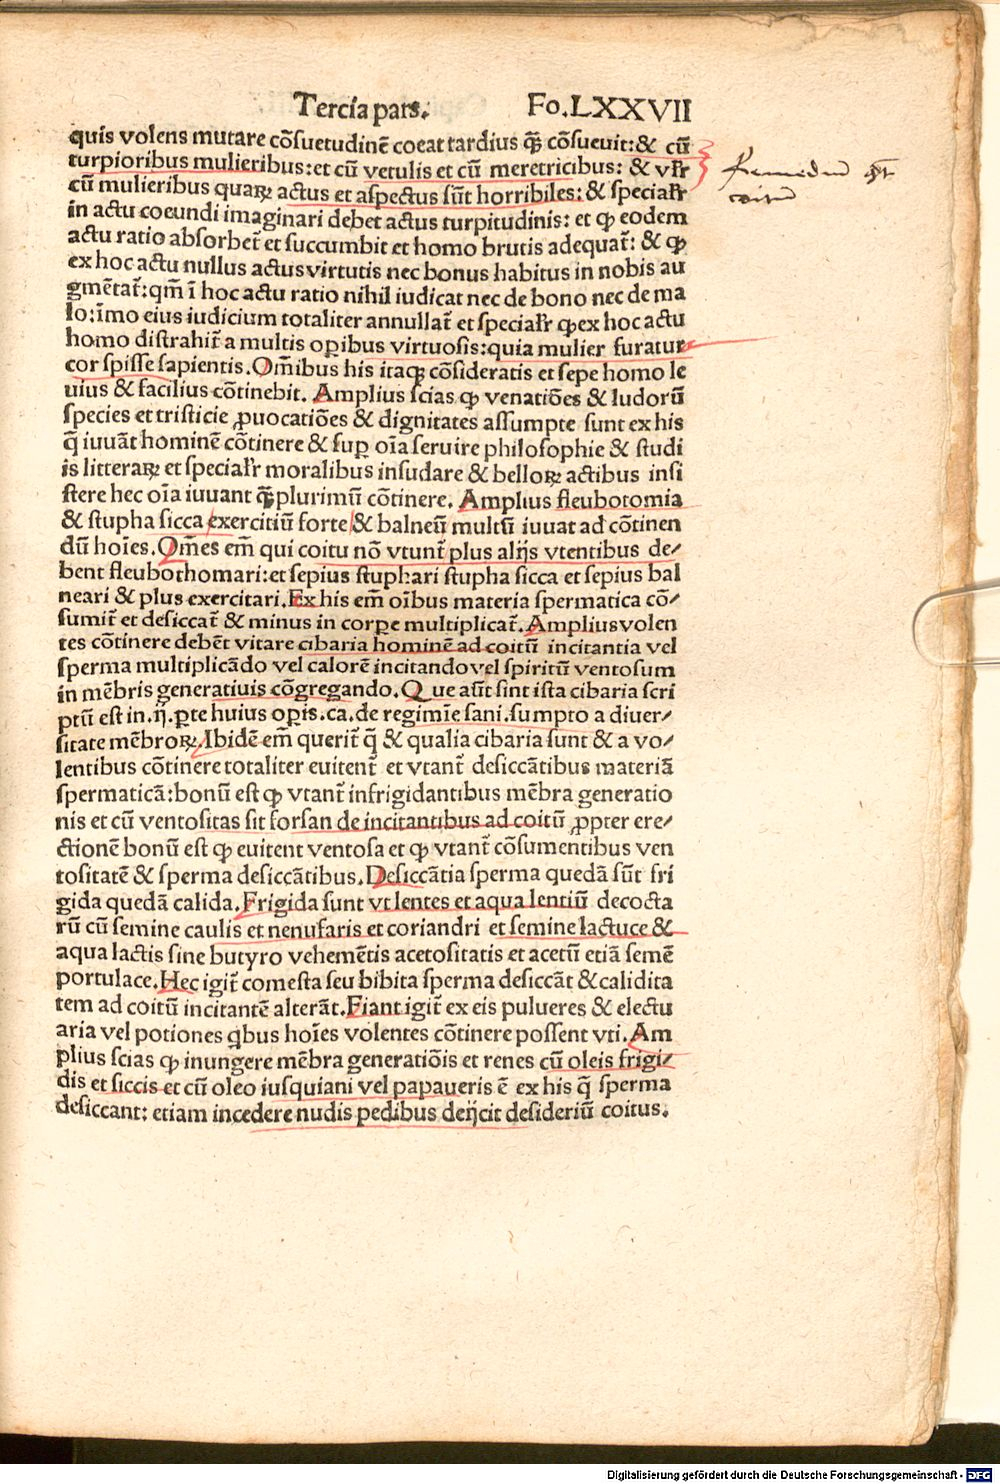 Tercia pars. Fo.LXXVII
quis volens mutare cõsuetudinẽ coeat tardius q̃ȝ cõsueuit:& cũ
turpioribus mulieribus:et cũ vetulis et cũ meretricibus: & vſr̃
cũ mulieribus quaꝝ actus et aspectus sũt horribiles:& specialr̃
in actu coeundi imaginari debet actus turpitudinis: et ꝙ eodem
actu ratio absorbet̃ et succumbit et homo brutis adequat̃: & ꝙ
ex hoc actu nullus actus virtutis nec bonus habitus in nobis au
gmẽtat̃:qm̃ ĩ hoc actu ratio nihil iudicat nec de bono nec de ma
lo:ĩmo eius iudicium totaliter annullat̃ et specialr̃ ꝙ ex hoc actu
homo distrahit̃ a multis oꝑibus virtuosis:quia mulier furatur
cor spisse sapientis. Om̃ibus his itaqȝ cõsideratis et sepe homo le
uius & facilius cõtinebit. Amplius scias ꝙ venatiões & ludorũ
species et tristicie ꝓuocatiões & dignitates assumpte sunt ex his
q̃ iuuãt hominẽ cõtinere & suꝑ oĩa seruire philosophie & studi
is litteraꝝ et specialr̃ moralibus insudare & belloꝝ actibus insi
stere hec oĩa iuuant q̃ȝplurimũ cõtinere. Amplius fleubotomia
& stupha sicca exercitiũ forte & balneũ multũ iuuat ad cõtinen
dũ hoĩes. Om̃es em̃ qui coitu nõ vtunt̃ plus alijs vtentibus de⸗
bent fleubothomari:et sepius stuphari stupha sicca et sepius bal
neari & plus exercitari. Ex his em̃ oĩbus materia spermatica cõ⸗
sumit̃ et desiccat̃ & minus in corꝑe multiplicat̃. Amplius volen
tes cõtinere debẽt vitare cibaria hominẽ ad coitũ incitantia vel
sperma multiplicãdo vel calorẽ incitando vel spiritũ ventosum
in mẽbris generatiuis cõgregando. Que aũt sint ista cibaria scri
ptũ est in .ij. ꝑte huius oꝑis. ca. de regimĩe sani. sumpto a diuer⸗
sitate mẽbroꝝ. Ibidẽ em̃ querit̃ q̃ & qualia cibaria sunt & a vo⸗
lentibus cõtinere totaliter euitent̃ et vtant̃ desiccãtibus materiã
spermaticã:bonũ est ꝙ vtant̃ infrigidantibus mẽbra generatio
nis et cũ ventositas sit forsan de incitantibus ad coitũ ꝓpter ere⸗
ctionẽ bonũ est ꝙ euitent ventosa et ꝙ vtant̃ cõsumentibus ven
tositatẽ & sperma desiccãtibus. Desiccãtia sperma quedã sũt fri
gida quedã calida. Frigida sunt vt lentes et aqua lentiũ decocta
rũ cũ semine caulis et nenufaris et coriandri et semine lactuce &
aqua lactis sine butyro vehemẽtis acetositatis et acetũ etiã semẽ
portulace. Hec igit̃ comesta seu bibita sperma desiccãt & calidita
tem ad coitũ incitantẽ alterãt. Fiant igit̃ ex eis pulueres & electu
aria vel potiones qͥbus hoĩes volentes cõtinere possent vti. Am
plius scias ꝙ inungere mẽbra generatiõis et renes cũ oleis frigi⸗
dis et siccis et cũ oleo iusquiani vel papaueris ẽ ex his q̃ sperma
desiccant: etiam incedere nudis pedibus deijcit desideriũ coitus.
Remediu
coitu
Digitalisierung gefördert durch die Deutsche Forschungsgemeinschaft - DFG